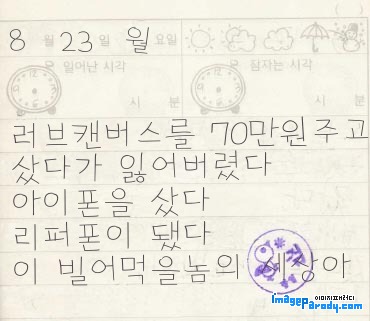 8 월 23 일 월 요일
일어난 시각 잠자는 시각
시 분 시 분
러브캔버스를 70만원주고
샀다가 잃어버렸다
아이폰을 샀다
리퍼폰이 됐다
이 빌어먹을놈의 세상아
이미지패러디
imageparody.com